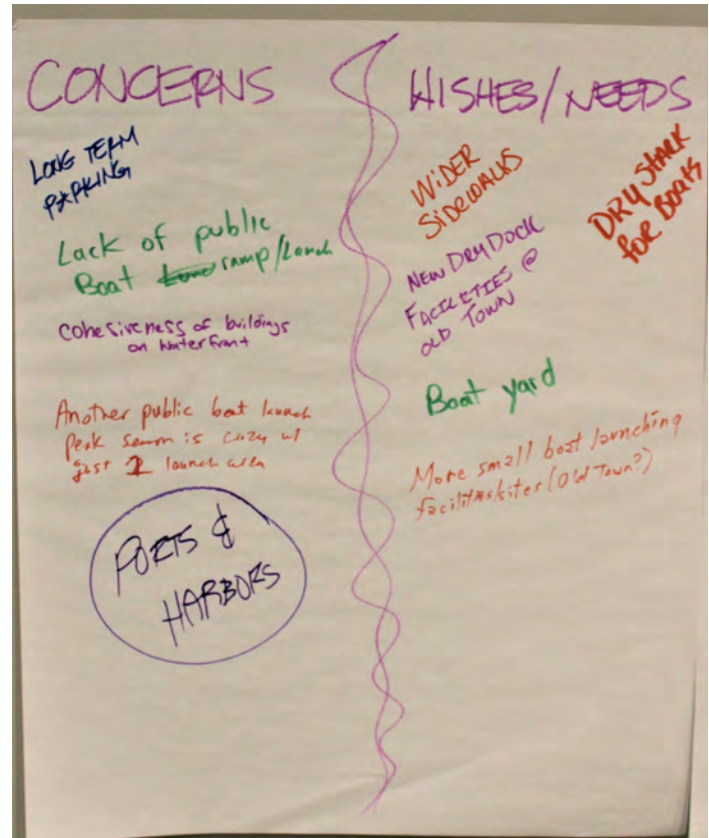 CONCERNS
LONG TERM
PARKING
Lack of public
Boat ramp/Launch
Cohesiveness of buildings
on waterfront
Another public boat launch
Peak season is crazy w/
just 1 launch area
PORTS &
HARBORS
WISHES/NEEDS
WIDER
SIDEWALKS
DRY STACK
for Boats
NEW DRY DOCK
FACILITIES @
OLD TOWN
Boat yard
More small boat launching
facilities/sites (Old Town?)